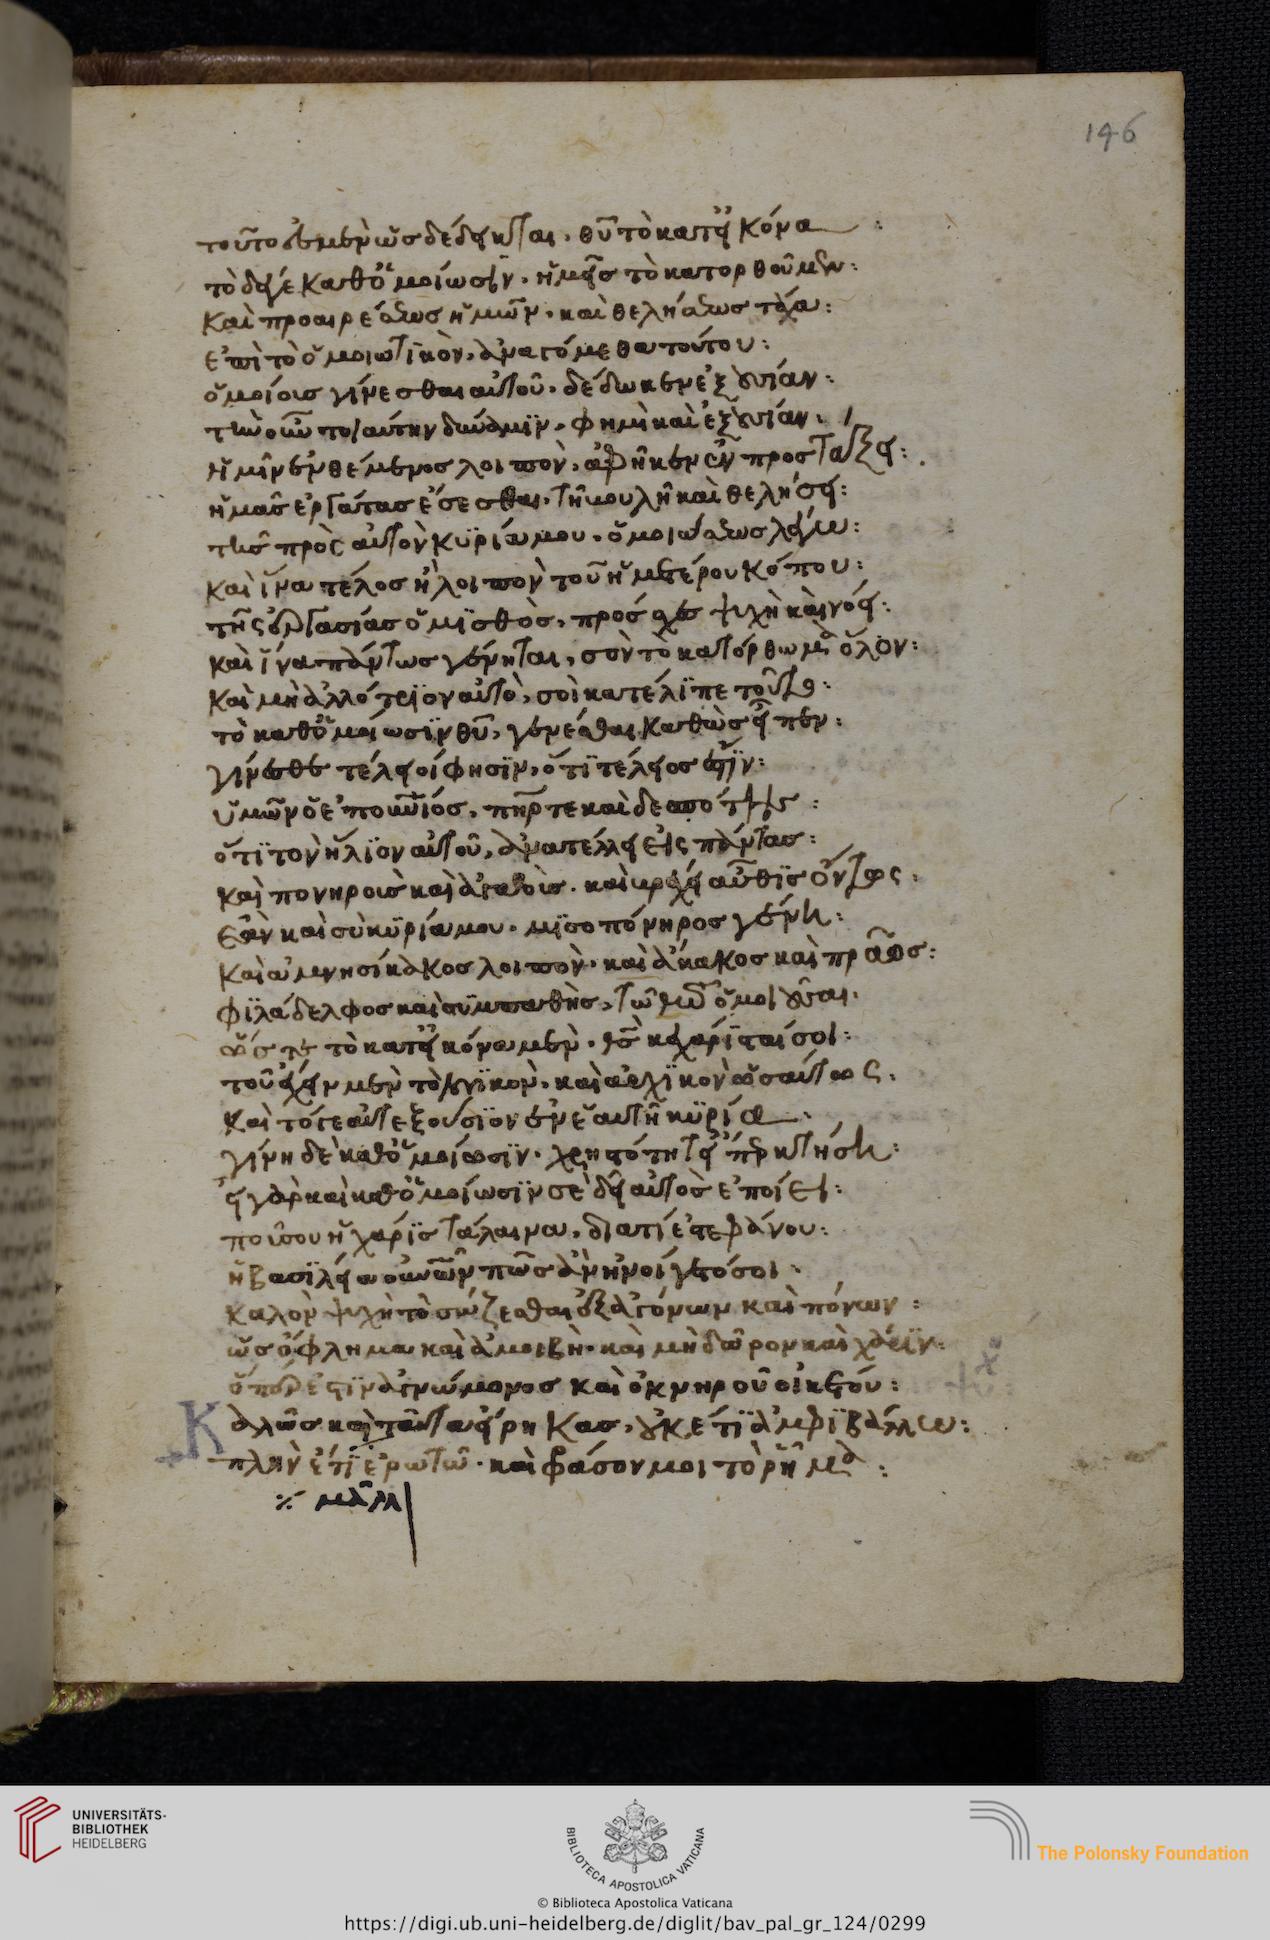 146
τοῦτο μὲν ὡς δέδεικται, θῦ τὸ κατ' εἰκόνα:
τὸ δέ γε καθ' ὁμοίωσιν, ἡμᾶς τὸ κατορθοῦμεν:
καὶ προαιρέσεως ἡμῶν, καὶ θελήσεως τάχα:
ἐπὶ τὸ ὁμοιωτικὸν, ἀναγόμεθα τούτου:
ὁμοίοις γίνεσθαι αὐτοῦ, δέδωκεν ἐξουσίαν:
τὴν τοιαύτην δύναμιν, φημὶ καὶ ἐξουσίαν.
ἡμῖν ἐνθέμενος λοιπὸν, ἀφῆκεν ἐν προστάξει:
ἡμᾶς ἐργάτας ἔσεσθαι, τῆ βουλῆ καὶ θελήσει:
τῆς πρὸς αὐτὸν κυρία μου, ὁμοιώσεως λέγω:
καὶ ἵνα τέλος ἦ λοιπὸν τοῦ ἡμετέρου κόπου:
τῆς ἐργασίας ὁ μισθὸς, πρόσχες ψυχὴ καὶ νόει:
καὶ ἵνα πάντως γένηται, σὸν τὸ κατόρθωμα ὅλον:
καὶ μὴ ἀλλότριον αὐτὸ, σοὶ κατέλιπε τοῦτο:
τὸ καθ' ὁμοίωσιν θῦ, γενέσθαι καθὼς εἶπεν:
γίνεσθε τέλειοί φησιν, ὅτι τέλειός ἐστιν:
ὑμῶν ὁ ἐπουνιός, πηρ τε καὶ δεσπότης:
ὅτι τὸν ἥλιον αὐτοῦ, ἀνατέλλει εἰς πάντας:
καὶ πονηροῖς καὶ ἀγαθοῖς. καὶ βρέχει αὖθις ὄντως.
ἐὰν καὶ σὺ κυρία μου, μισοπόνηρος γένη:
καὶ ἀμνησίκακος λοιπὸν, καὶ ἄκακος καὶ πρᾶος:
φιλάδελφος καὶ συμπαθὴς, τῶ θῶ ὁμοιοῦσαι.
ὥστε τὸ κατ' εἰκόνα μὲν, θς κεχάρισταί σοι:
τοῦ ἔχειν μὲν τὸ λογικὸν, καὶ ἀρχικὸν ὡσαύτως.
καὶ τότε αὐτεξούσιον ἐν ἑαυτῆ κυρία.
γίνη δὲ καθ' ὁμοίωσιν, χρηστότητ' εἴπερ κτήση:
εἰ γὰρ καὶ καθ' ὁμοίωσιν σὲ δὴ αὐτὸς ἐποίει:
ποῖ σου ἡ χάρις τάλαινα, διατί ἐστεφάνου:
ἡ βασιλεία οὐνῶν πῶς ἀνηνοίγετό σοι.
καλὸν ψυχὴ τὸ σώζεσθαι ἐξ ἀγώνων καὶ πόνων:
ὡς ὄφλημα καὶ ἀμοιβὴ, καὶ μὴ δῶρον καὶ χάριν:
ὅπερ ἐστὶν ἀγνώμονος καὶ ὀκνηροῦ οἰκέτου:
Καλῶς καὶ ταῦτα εἴρηκας, οὐκέτι ἀμφιβάλλω:
πλὴν ἔτι ἐρωτῶ, καὶ φράσον μοι τὸ ῥῆμα:
UNIVERSITÄTS-
BIBLIOTHEK
HEIDELBERG
BIBLIOTECA APOSTOLICA VATICANA
The Polonsky Foundation
© Biblioteca Apostolica Vaticana
https://digi.ub.uni-heidelberg.de/diglit/bav_pal_gr_124/0299